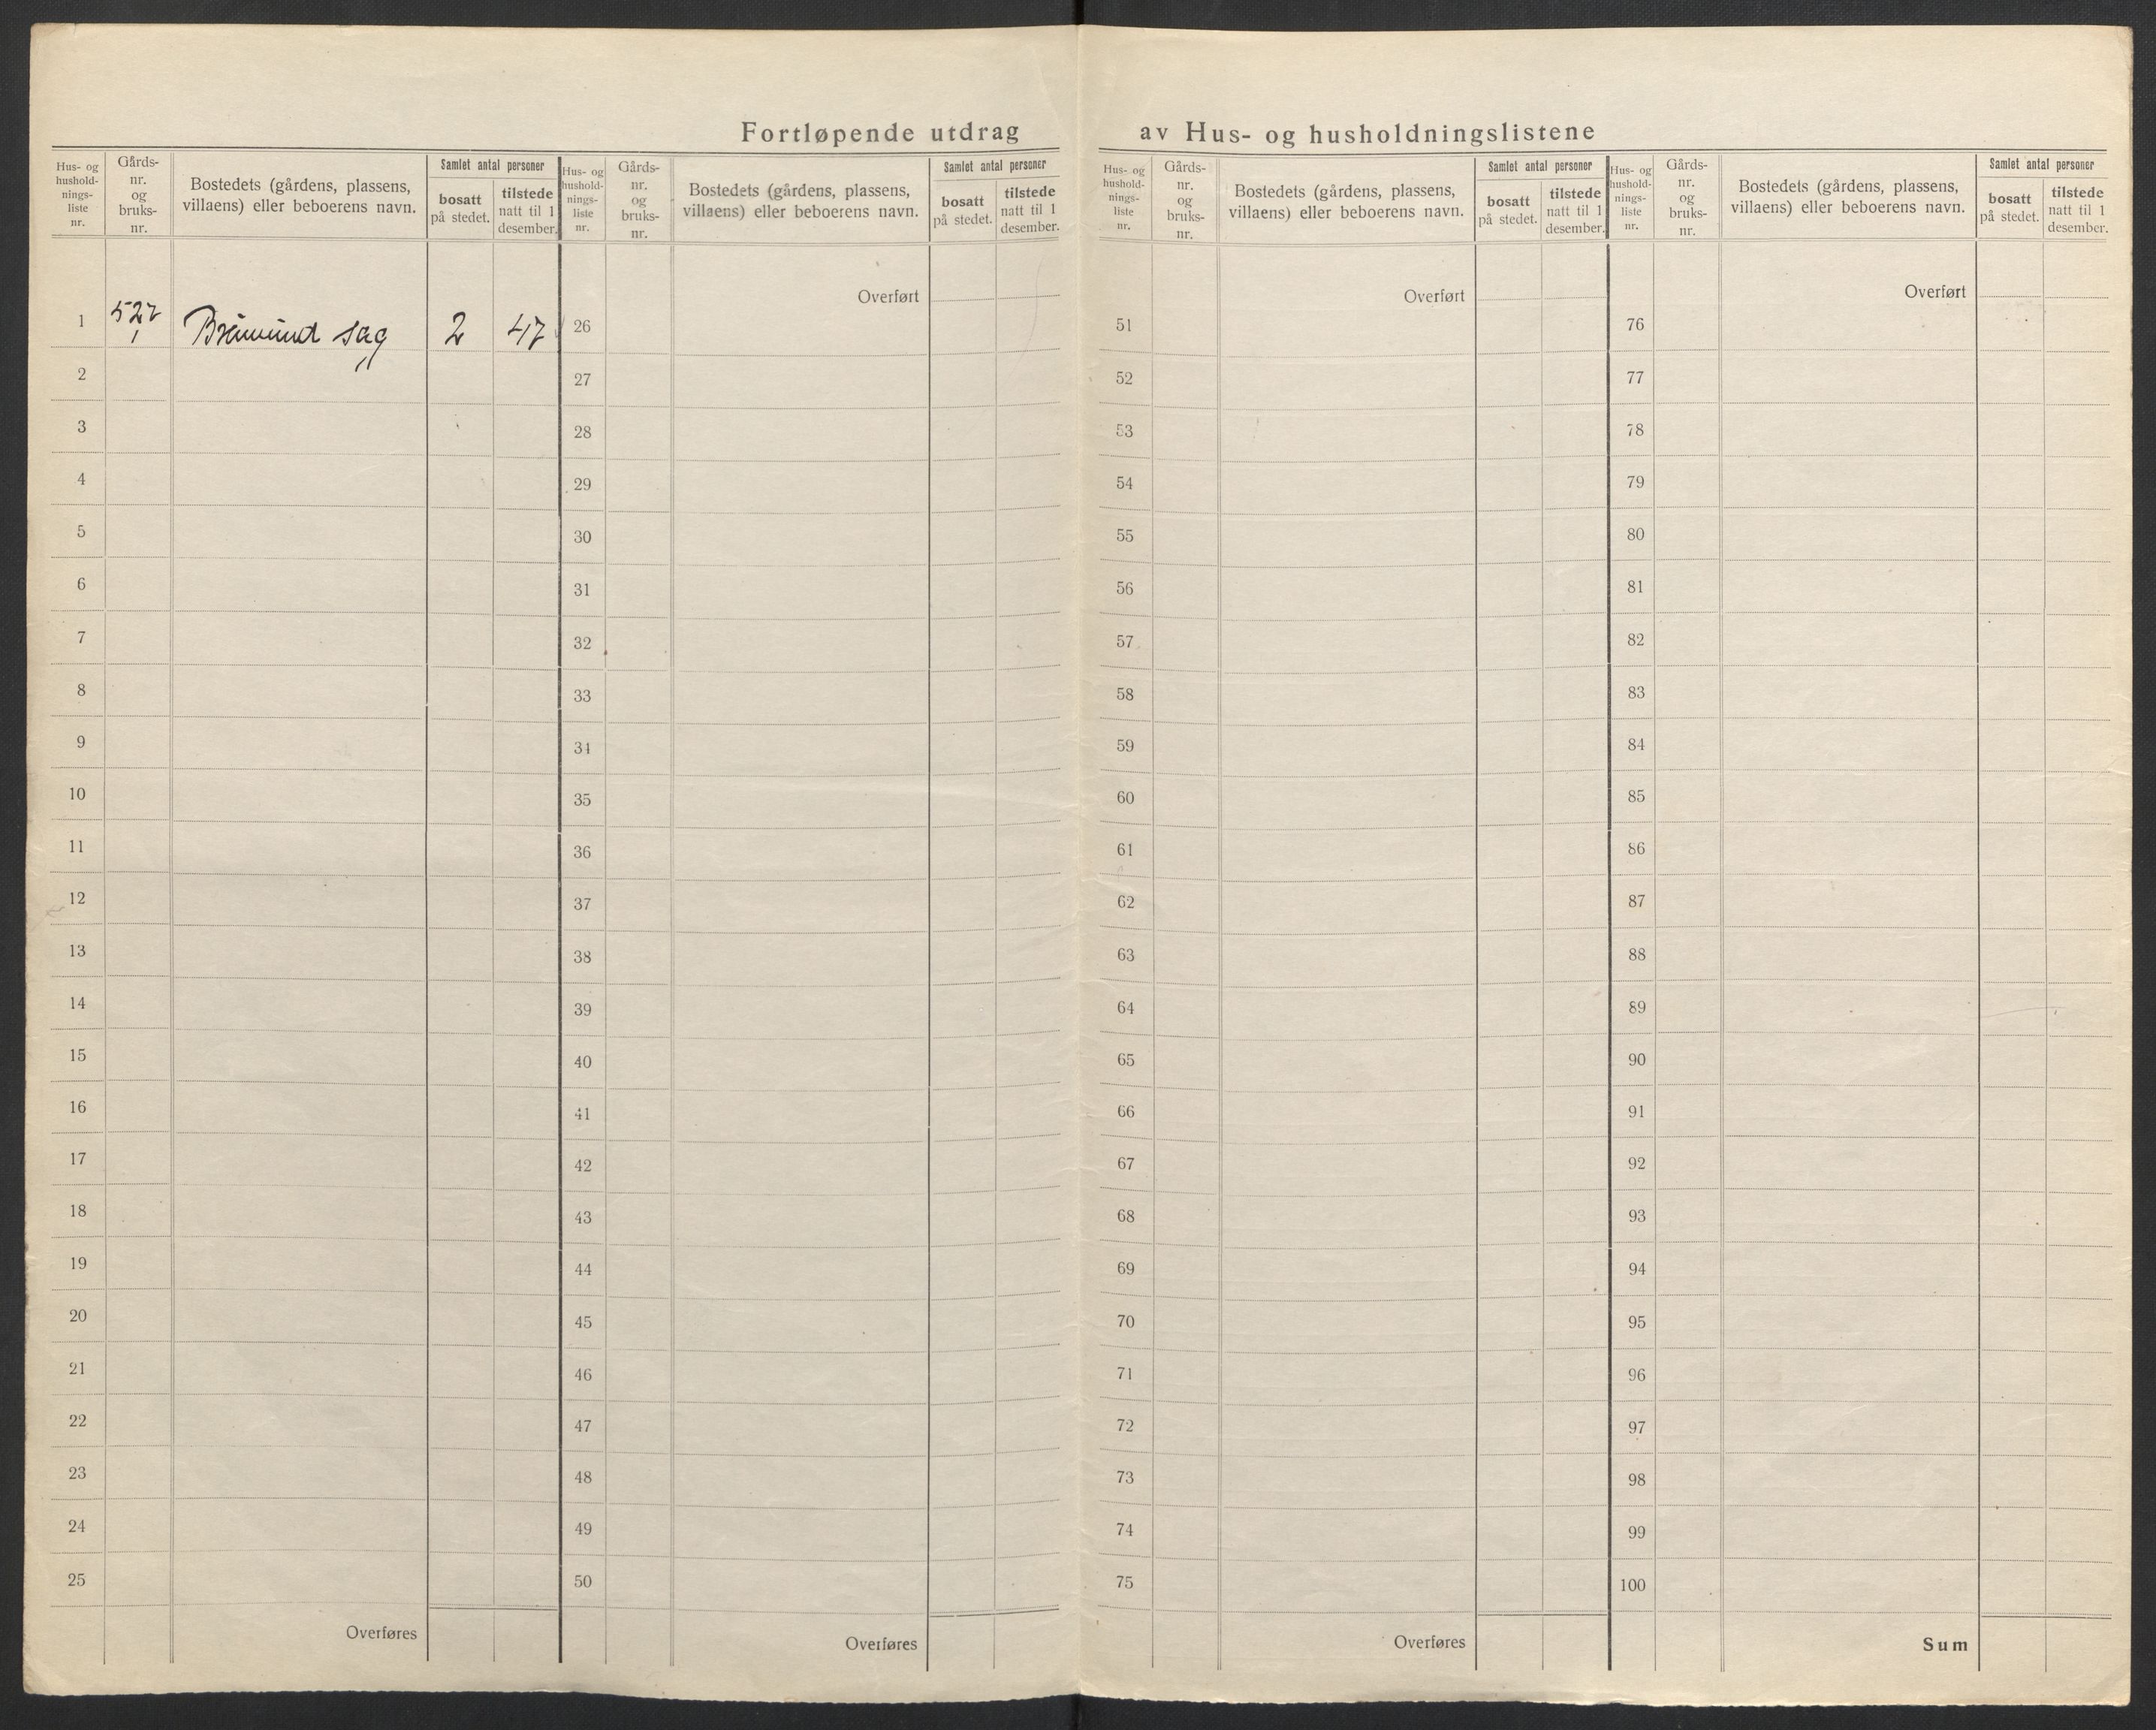 Fortløpende utdrag av Hus- og husholdningslistene
Hus- og
hushold-
nings-
liste
nr.
Gårds-
nr.
og
bruks-
nr.
Bostedets (gårdens, plassens,
villaens) eller beboerens navn.
Samlet antal personer
bosatt
på stedet.
tilstede
natt til 1
desember.
Hus- og
hushold-
nings-
liste
nr.
Gårds-
nr.
og
bruks-
nr.
Bostedets (gårdens, plassens,
villaens) eller beboerens navn.
Samlet antal personer
bosatt
på stedet.
tilstede
natt til 1
desember.
Hus- og
hushold-
nings-
liste
nr.
Gårds-
nr.
og
bruks-
nr.
Bostedets (gårdens, plassens,
villaens) eller beboerens navn.
Samlet antal personer
bosatt
på stedet.
tilstede
natt til 1
desember.
Hus- og
hushold-
nings-
liste
nr.
Gårds-
nr.
og
bruks-
nr.
Bostedets (gårdens, plassens,
villaens) eller beboerens navn.
Samlet antal personer
bosatt
på stedet.
tilstede
natt til 1
desember.
Overført Overført Overført
1 sag 2 47 26 51 76
2 27 52 77
3 28 53 78
4 29 54 79
5 30 55 80
6 31 56 81
7 32 57 82
8 33 58 83
9 34 59 84
10 35 60 85
11 36 61 86
12 37 62 87
13 38 63 88
14 39 64 89
15 40 65 90
16 41 66 91
17 42 67 92
18 43 68 93
19 44 69 94
20 45 70 95
21 46 71 96
22 47 72 97
23 48 73 98
24 49 74 99
25 50 75 100
Overføres Overføres Overføres Sum